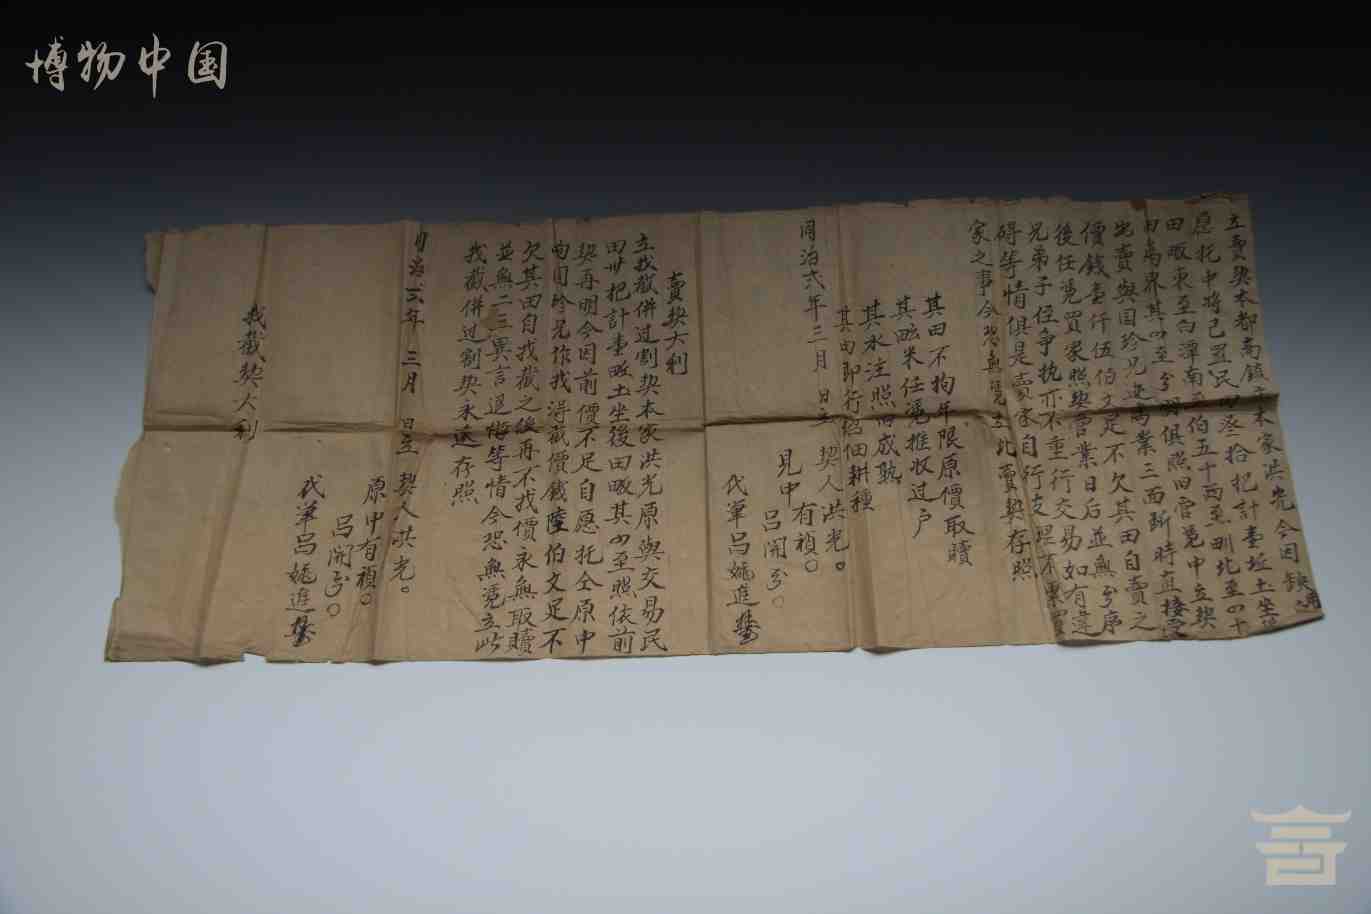 博物中国
立賣契本都高鎮庄本家洪光今因缺用
愿托中將己置民田叁拾把計壹坵土坐
田畈東至白潭南至伯五十西至圳北至四十
田為界其四至分明俱照旧管憑中立契
出賣與国珍兄邊為業三面斷時直接受
價錢壹仟伍伯文足不欠其田自賣之
後任憑買家照契管業日后並無分序
兄弟子侄争执亦不重行交易如有違
碍等情俱是賣家自行支理不累買
家之事今恐無憑立此賣契存照
其田不拘年限原價取贖
其畝米任憑推收过户
其水注照旧成熟
其田即行绍佃耕種
同治弍年三月 日立 契人洪光
見中有禎
吕開
代筆吕姚進
賣契大利
立找截併过割契本家洪光原與交易民
田卅把計壹畈土坐後田畈其四至照依前
契再明今因前價不足自愿托仝原中
向国珍兄作找得截價錢陸伯文足不
欠其田自找截之後再不找價永無取贖
並無二三異言退悔等情今恐無憑立此
找截併过割契永远存照
同治弍年三月 日立契人洪光
原中有禎
吕開
代筆吕姚進
找截契大利